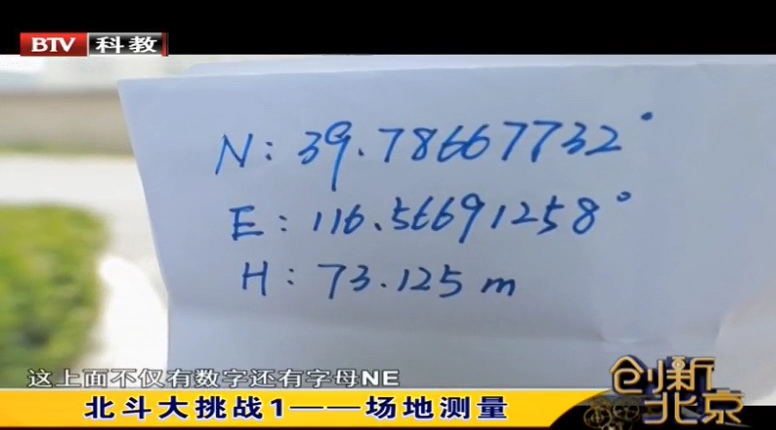 BTV 科教
N: 39.78667732°
E: 116.56691258°
H: 73.125 m
这上面不仅有数字还有字母NE
北斗大挑战1——场地测量
创新北京